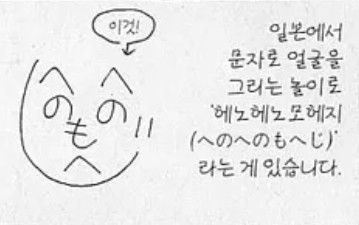 이것!
へ へ
の の
も
へ
일본에서
문자로 얼굴을
그리는 놀이로
'헤노헤노모헤지
(へのへのもへじ)'
라는 게 있습니다.